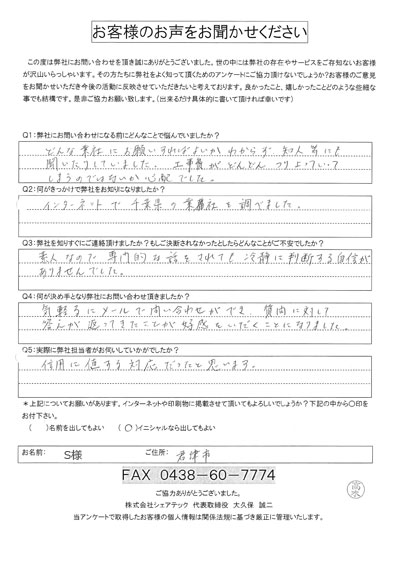 お客様のお声をお聞かせください
この度は弊社にお問い合わせを頂き誠にありがとうございました。世の中には弊社の存在やサービスをご存知ないお客様
が沢山いらっしゃいます。その方たちに弊社をよく知って頂くためのアンケートにご協力頂けないでしょうか？お客様のご意見
をお聞かせいただき今後の活動に反映させていただきたいと考えております。良かったこと、嬉しかったことどのような些細な
事でも結構です。是非ご協力お願い致します。（出来るだけ具体的に書いて頂ければ幸いです）
Q1：弊社にお問い合わせになる前にどんなことで悩んでいましたか？
どんな業社にお願いすればよいかわからず 知人等にも
聞いたりしていました。工事費がどんどんつり上っていって
しまうのではないか心配でした。
Q2：何がきっかけで弊社をお知りになりましたか？
インターネットで千葉県の業社を調べました。
Q3：弊社を知りすぐにご連絡頂けましたか？もしご決断されなかったとしたらどんなことがご不安でしたか？
素人なので専門的な話をされても冷静に判断する自信が
ありませんでした。
Q4：何が決め手となり弊社にお問い合わせ頂きましたか？
気軽るにメールで問い合わせができ、質問に対して
答えが返ってきたことが好感をいだくことになりました。
Q5：実際に弊社担当者がお伺いしていかがでしたか？
信用に値する対応だったと思います。
＊上記についてお願いがあります。インターネットや印刷物に掲載させて頂いてもよろしいでしょうか？下記の中から〇印を
お付け下さい。
（　）名前を出してもよい　（〇）イニシャルなら出してもよい
お名前： S様 ご住所： 君津市
FAX 0438-60-7774
ご協力ありがとうございました。
株式会社シェアテック 代表取締役 大久保 誠二
当アンケートで取得したお客様の個人情報は関係法規に基づき厳正に管理いたします。